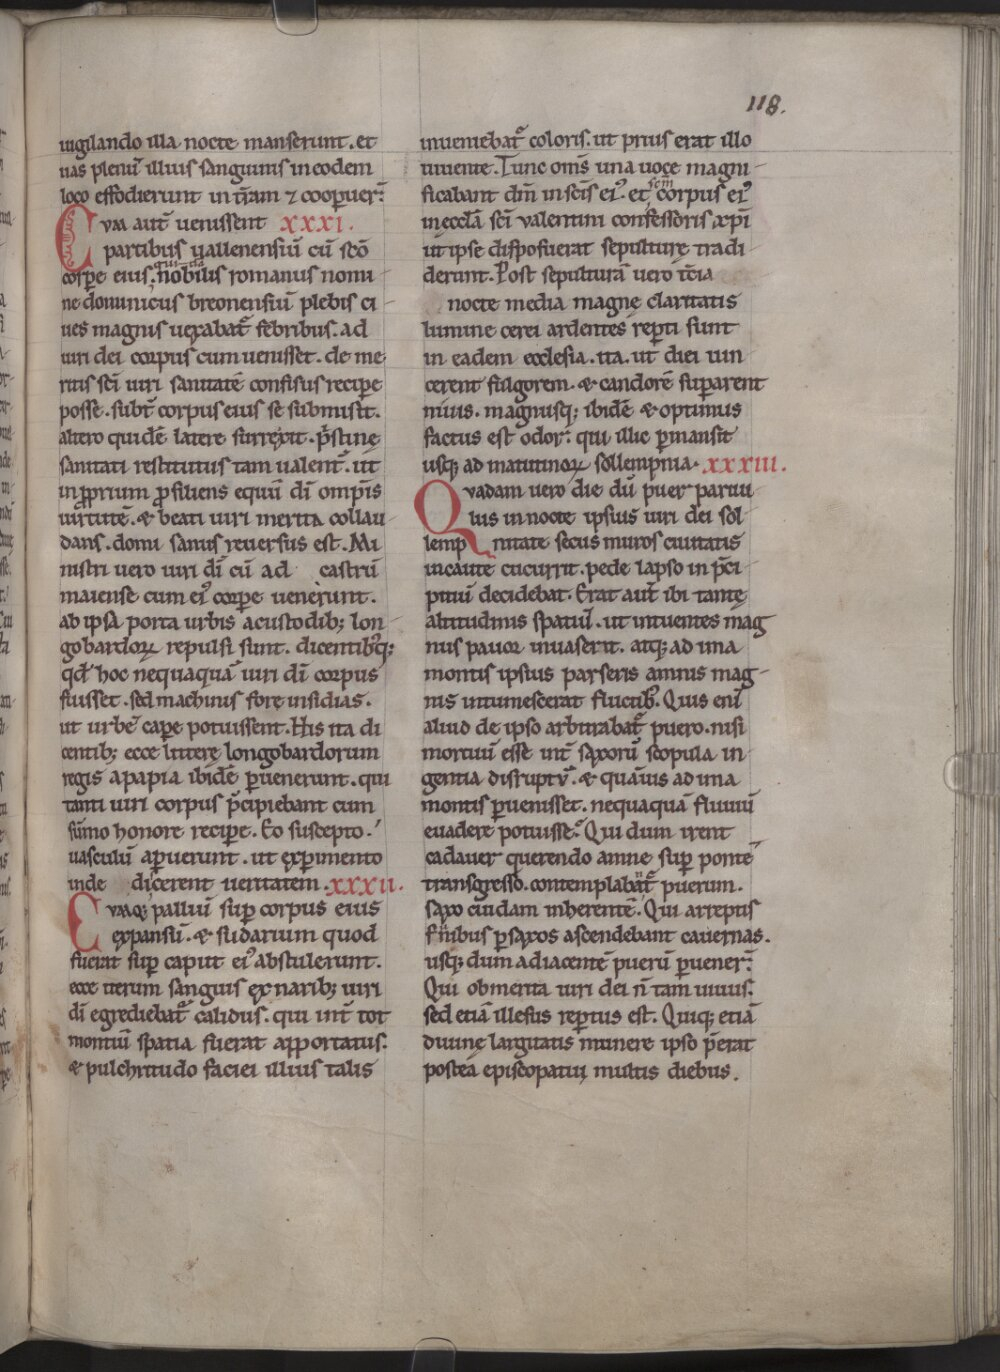 118.
uigilando illa nocte manserunt. et
uas plenū illius sanguinis in eodem
loco effodierunt in t̄ram ⁊ coop̱uer̄.
Cvm aut̄ uenissent xxxi.
partibus uallenensiū cū sc̄o
corp̱e eius. quidā nobilis romanus nomi
ne dominicus breonensiū plebis ci
ues magnis uexabat᷑ febribus. ad
uiri dei corpus cum uenisset. de me
ritis sc̄i uiri sanitatē confisus recip̱e
posse. subt᷑ corpus eius se submisit.
altero quidē latere surrexit. p̄stinę
sanitati restitutus tam ualent᷑. ut
in p̱prium ꝓsiliens equū dī omp̄is
uirtutē. & beati uiri merita collau
dans. domi sanus reuersus est. Mi
nistri uero uiri dī cū ad castrū
maiense cum ei᷒ corp̱e uenerunt.
ab ipsa porta urbis a custodib; lon
gobardoꝝ repulsi sunt. dicentibꝰq;
qd̄ hoc nequaquā uiri dī corpus
fuisset. sed machinis fore insidias.
ut urbē cap̱e potuissent. His ita di
centib; ecce litterę longobardorum
regis a papia ibidē p̱uenerunt. qui
tanti uiri corpus p̄cipiebant cum
sūmo honore recip̱e. Eo suscepto.
uasculū ap̱uerunt. ut exp̱imento
inde dicerent ueritatem. xxxii.
Cvmq; palliū sup̱ corpus eius
expansū. & sudarium quod
fuerat sup̱ caput ei᷒ abstulerunt.
ecce iterum sanguis ex narib; uiri
dī egrediebat᷑ calidus. qui int᷑ tot
montiū spatia fuerat apportatus.
& pulchritudo faciei illius talis
inueniebat᷑ coloris. ut prius erat illo
uiuente. Tunc om̄s una uoce magni
ficabant dm̄ in sc̄is ei᷒. et sc̄m corpus ei᷒
in ęcclā sc̄i valentini confessoris xp̄i
ut ipse disposuerat sepulturę tradi
derunt. Post sepulturā uero t̄cia
nocte media magnę claritatis
lumine cerei ardentes rep̱ti sunt
in eadem ecclesia. ita. ut diei uin
cerent fulgorem. & candorē sup̱arent
niuis. magnusq; ibidē & optimus
factus est odor. qui illic p̱mansit
usq; ad matutinoꝝ sollempnia. xxxiii.
Qvadam uero die dū puer paruu
lus in nocte ipsius uiri dei sol
lempnitate secus muros ciuitatis
incaute cucurrit. pede lapso in p̄ci
pitiū decidebat. Erat aut̄ ibi tantę
altitudinis spatiū. ut intuentes mag
nus pauor inuaserit. atq; ad ima
montis ipsius parseris amnis mag
nis intumescerat fluctib᷒. Quis enī
aliud de ipso arbitrabat᷑ puero. nisi
mortuū esse int᷑ saxorū scopula in
gentia disruptū. & quāuis ad ima
montis p̱uenisset. nequaquā fluuiū
euadere potuisset. Qui dum irent
cadauer querendo amne sup̱ pontē
transgresso. contemplabant᷑ puerum.
saxo cuidam inherentē. Qui arreptis
funibus p̱ saxos ascendebant cauernas.
usq; dum adiacentē puerū p̱uener̄.
Qui ob merita uiri dei n̄ tam uiuus.
sed etiā illesus rep̱tus est. Quiq; etiā
diuinę largitatis munere ipso p̄erat
postea episcopatui multis diebus.